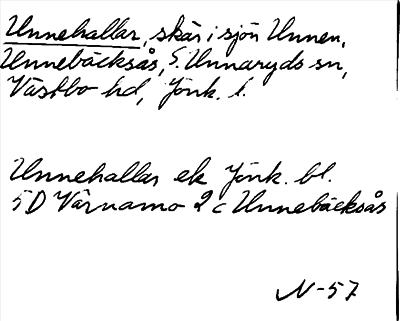 Unnehallar, skär i sjön Unnen,
Unnebäcksås, S. Unnaryds sn,
Västbo hd, Jönk. l.
Unnehallar ek Jönk. bl.
5D Värnamo 2 c Unnebäcksås
N-57